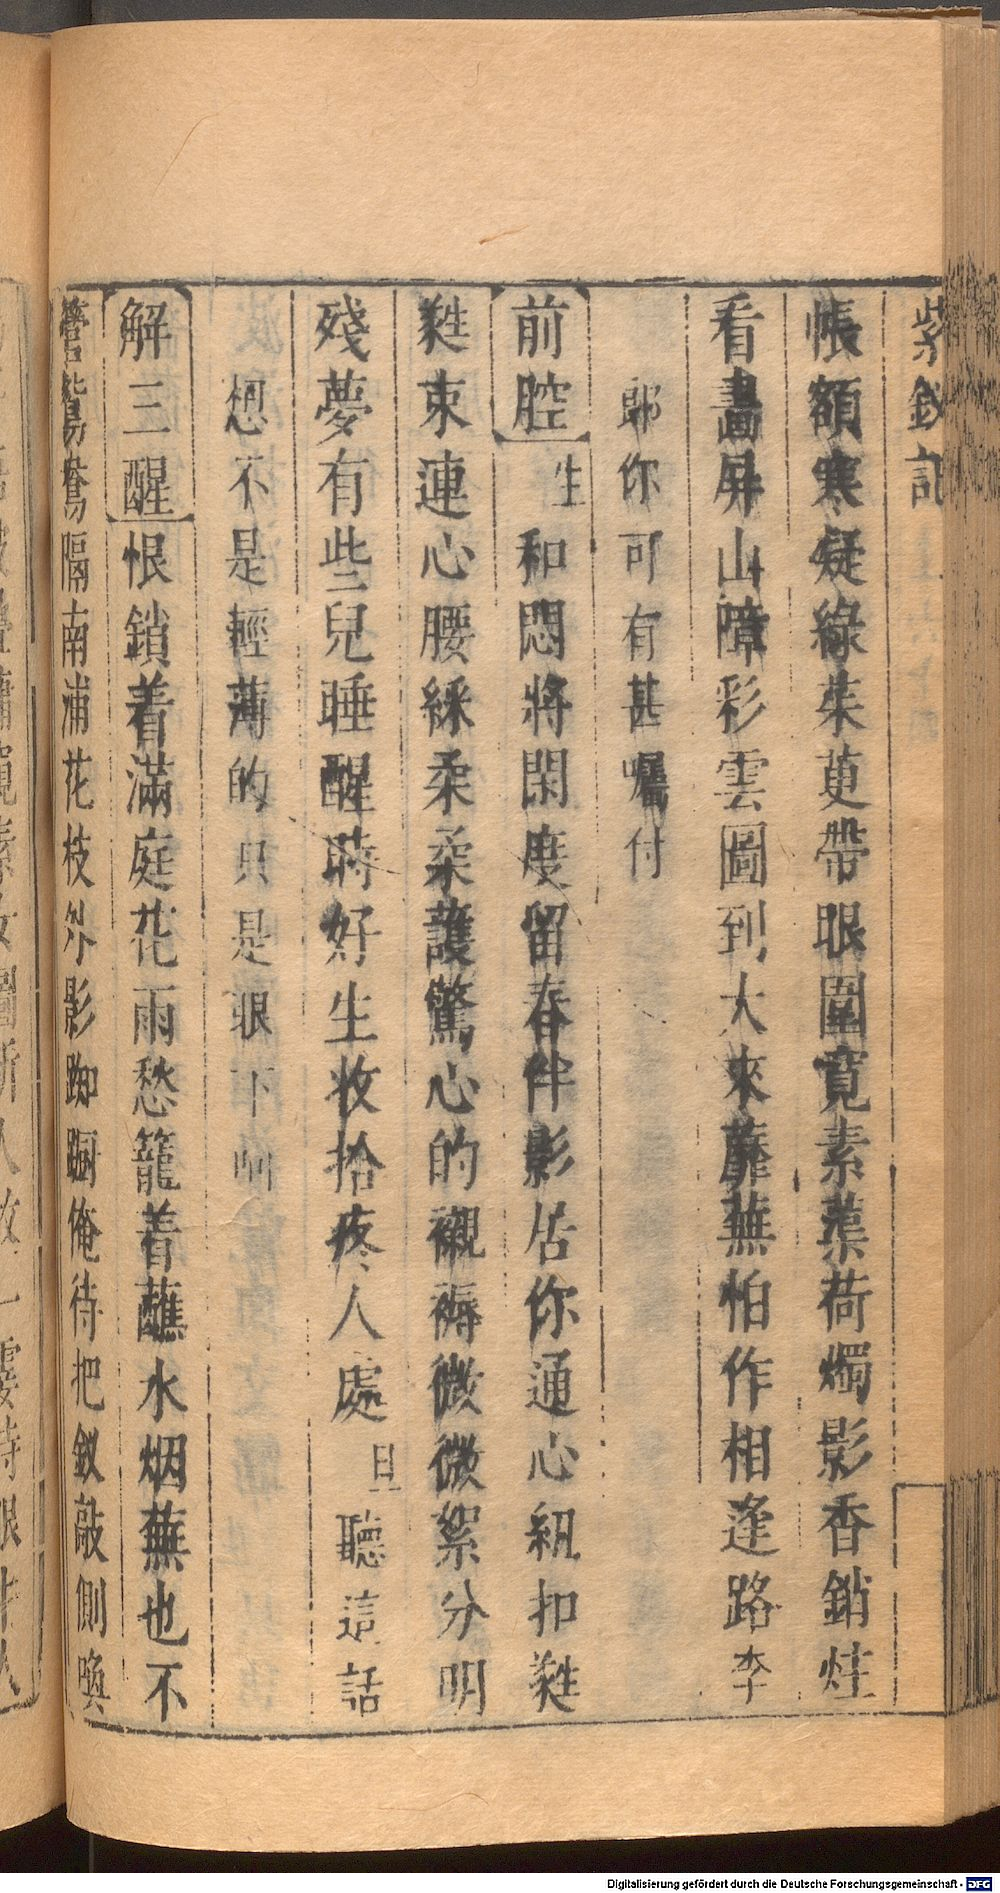 紫釵記
帳額寒凝綠茱萸帶眼圍寬素蘂荷燭影香銷炷
看畫屏山障彩雲圖到大來蘼蕪怕作相逢路李
郎你可有甚囑付
前腔生和悶將閑度留春伴影居你通心紐扣蕤
蕤束連心腰綵柔柔護驚心的襯褥微微絮分明
殘夢有些兒睡醒時好生收拾疼人處旦聽這話
想不是輕薄的只是眼下呵
解三酲恨鎖着滿庭花雨愁籠着蘸水烟蕪也不
管鴛鴦隔南浦花枝外影踟躕俺待把釵敲側喚
Digitalisierung gefördert durch die Deutsche Forschungsgemeinschaft - DFG